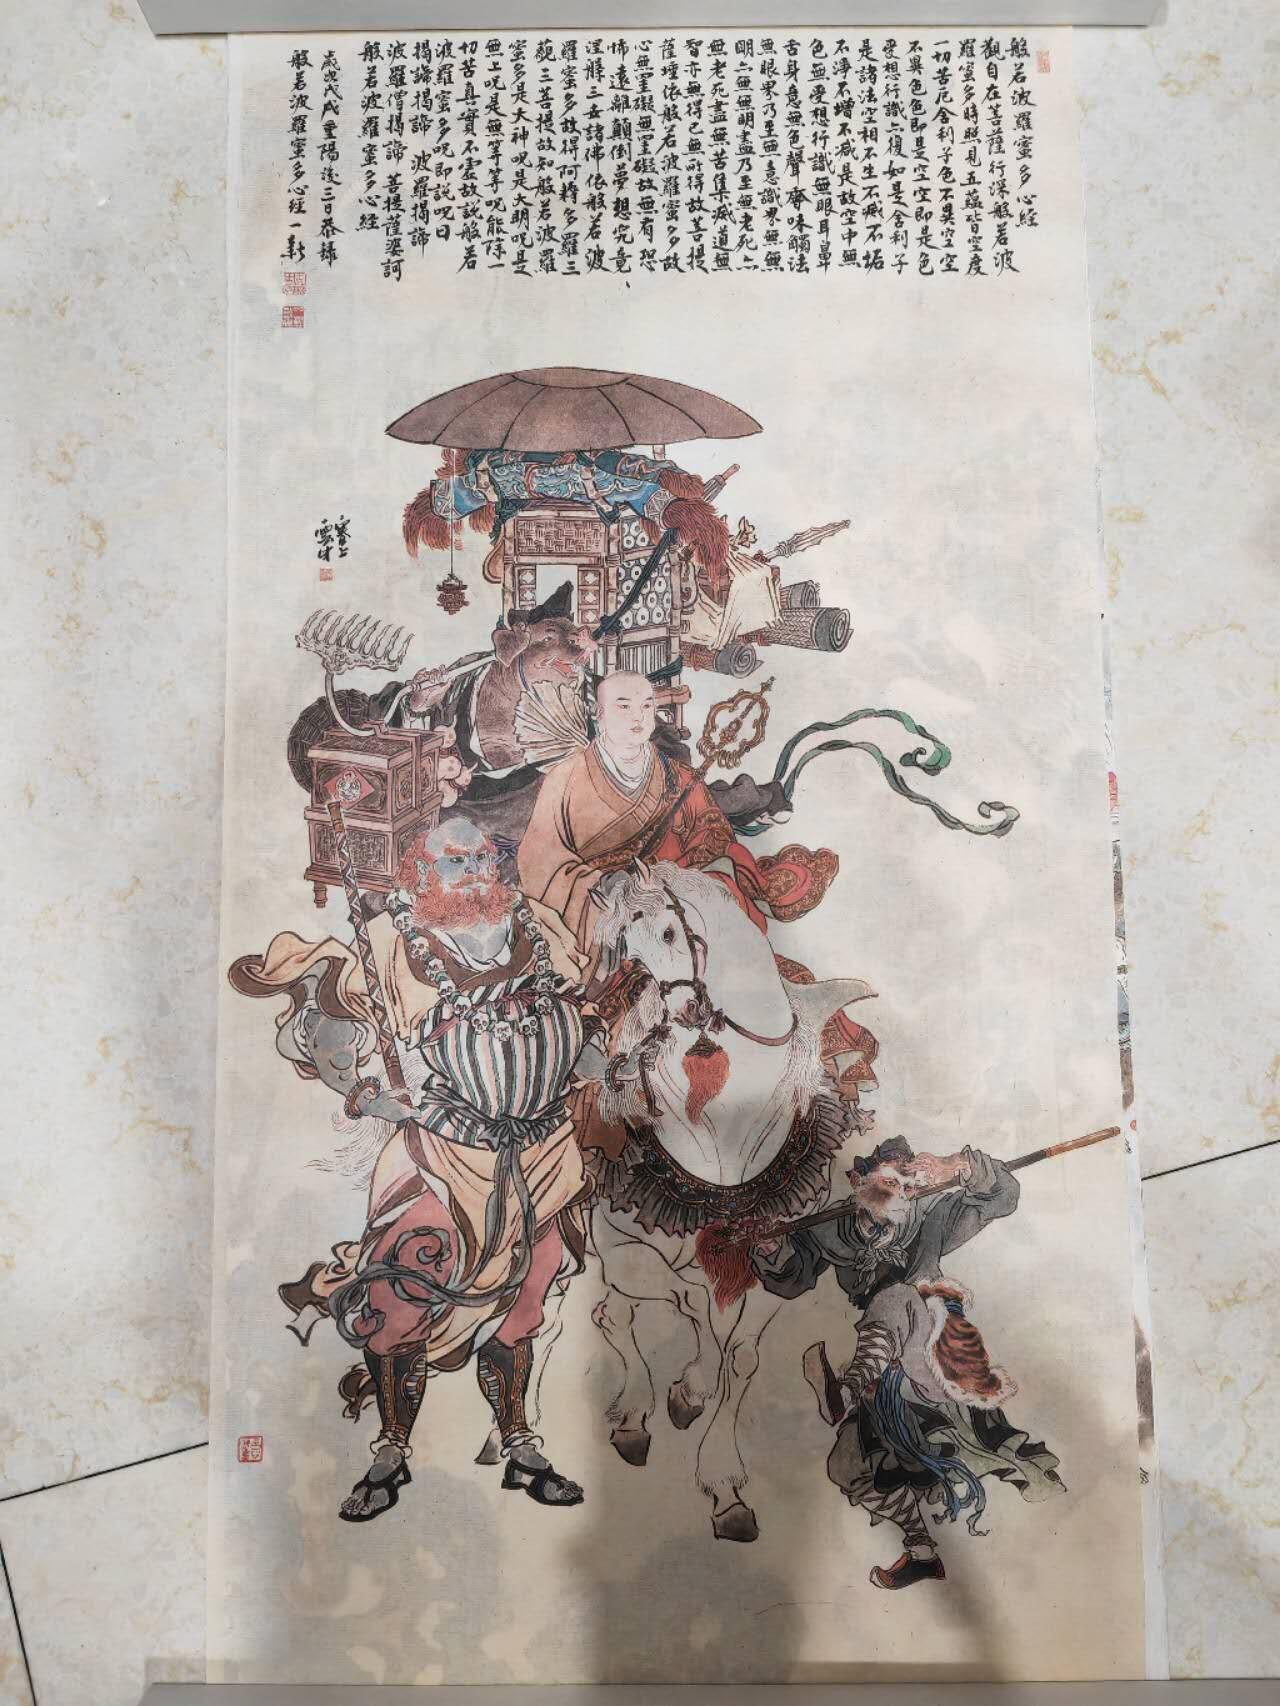 般若波羅蜜多心經
觀自在菩薩行深般若波
羅蜜多時照見五蘊皆空度
一切苦厄舍利子色不異空空
不異色色即是空空即是色
受想行識亦復如是舍利子
是諸法空相不生不滅不垢
不淨不增不减是故空中無
色無受想行識無眼耳鼻
舌身意無色聲香味觸法
無眼界乃至無意識界無無
明亦無無明盡乃至無老死亦
無老死盡無苦集滅道無
智亦無得已無所得故菩提
薩埵依般若波羅蜜多故
心無罣礙無罣礙故無有恐
怖遠離顛倒夢想究竟
涅槃三世諸佛依般若波
羅蜜多故得阿耨多羅三
藐三菩提故知般若波羅
蜜多是大神呪是大明呪是
無上呪是無等等呪能除一
切苦真實不虛故說般若
波羅蜜多呪即說呪曰
揭諦揭諦 波羅揭諦
波羅僧揭諦 菩提薩婆訶
般若波羅蜜多心經
歲次戊戌重陽後三日恭錄
般若波羅蜜多心經 一新
塞上
雲才